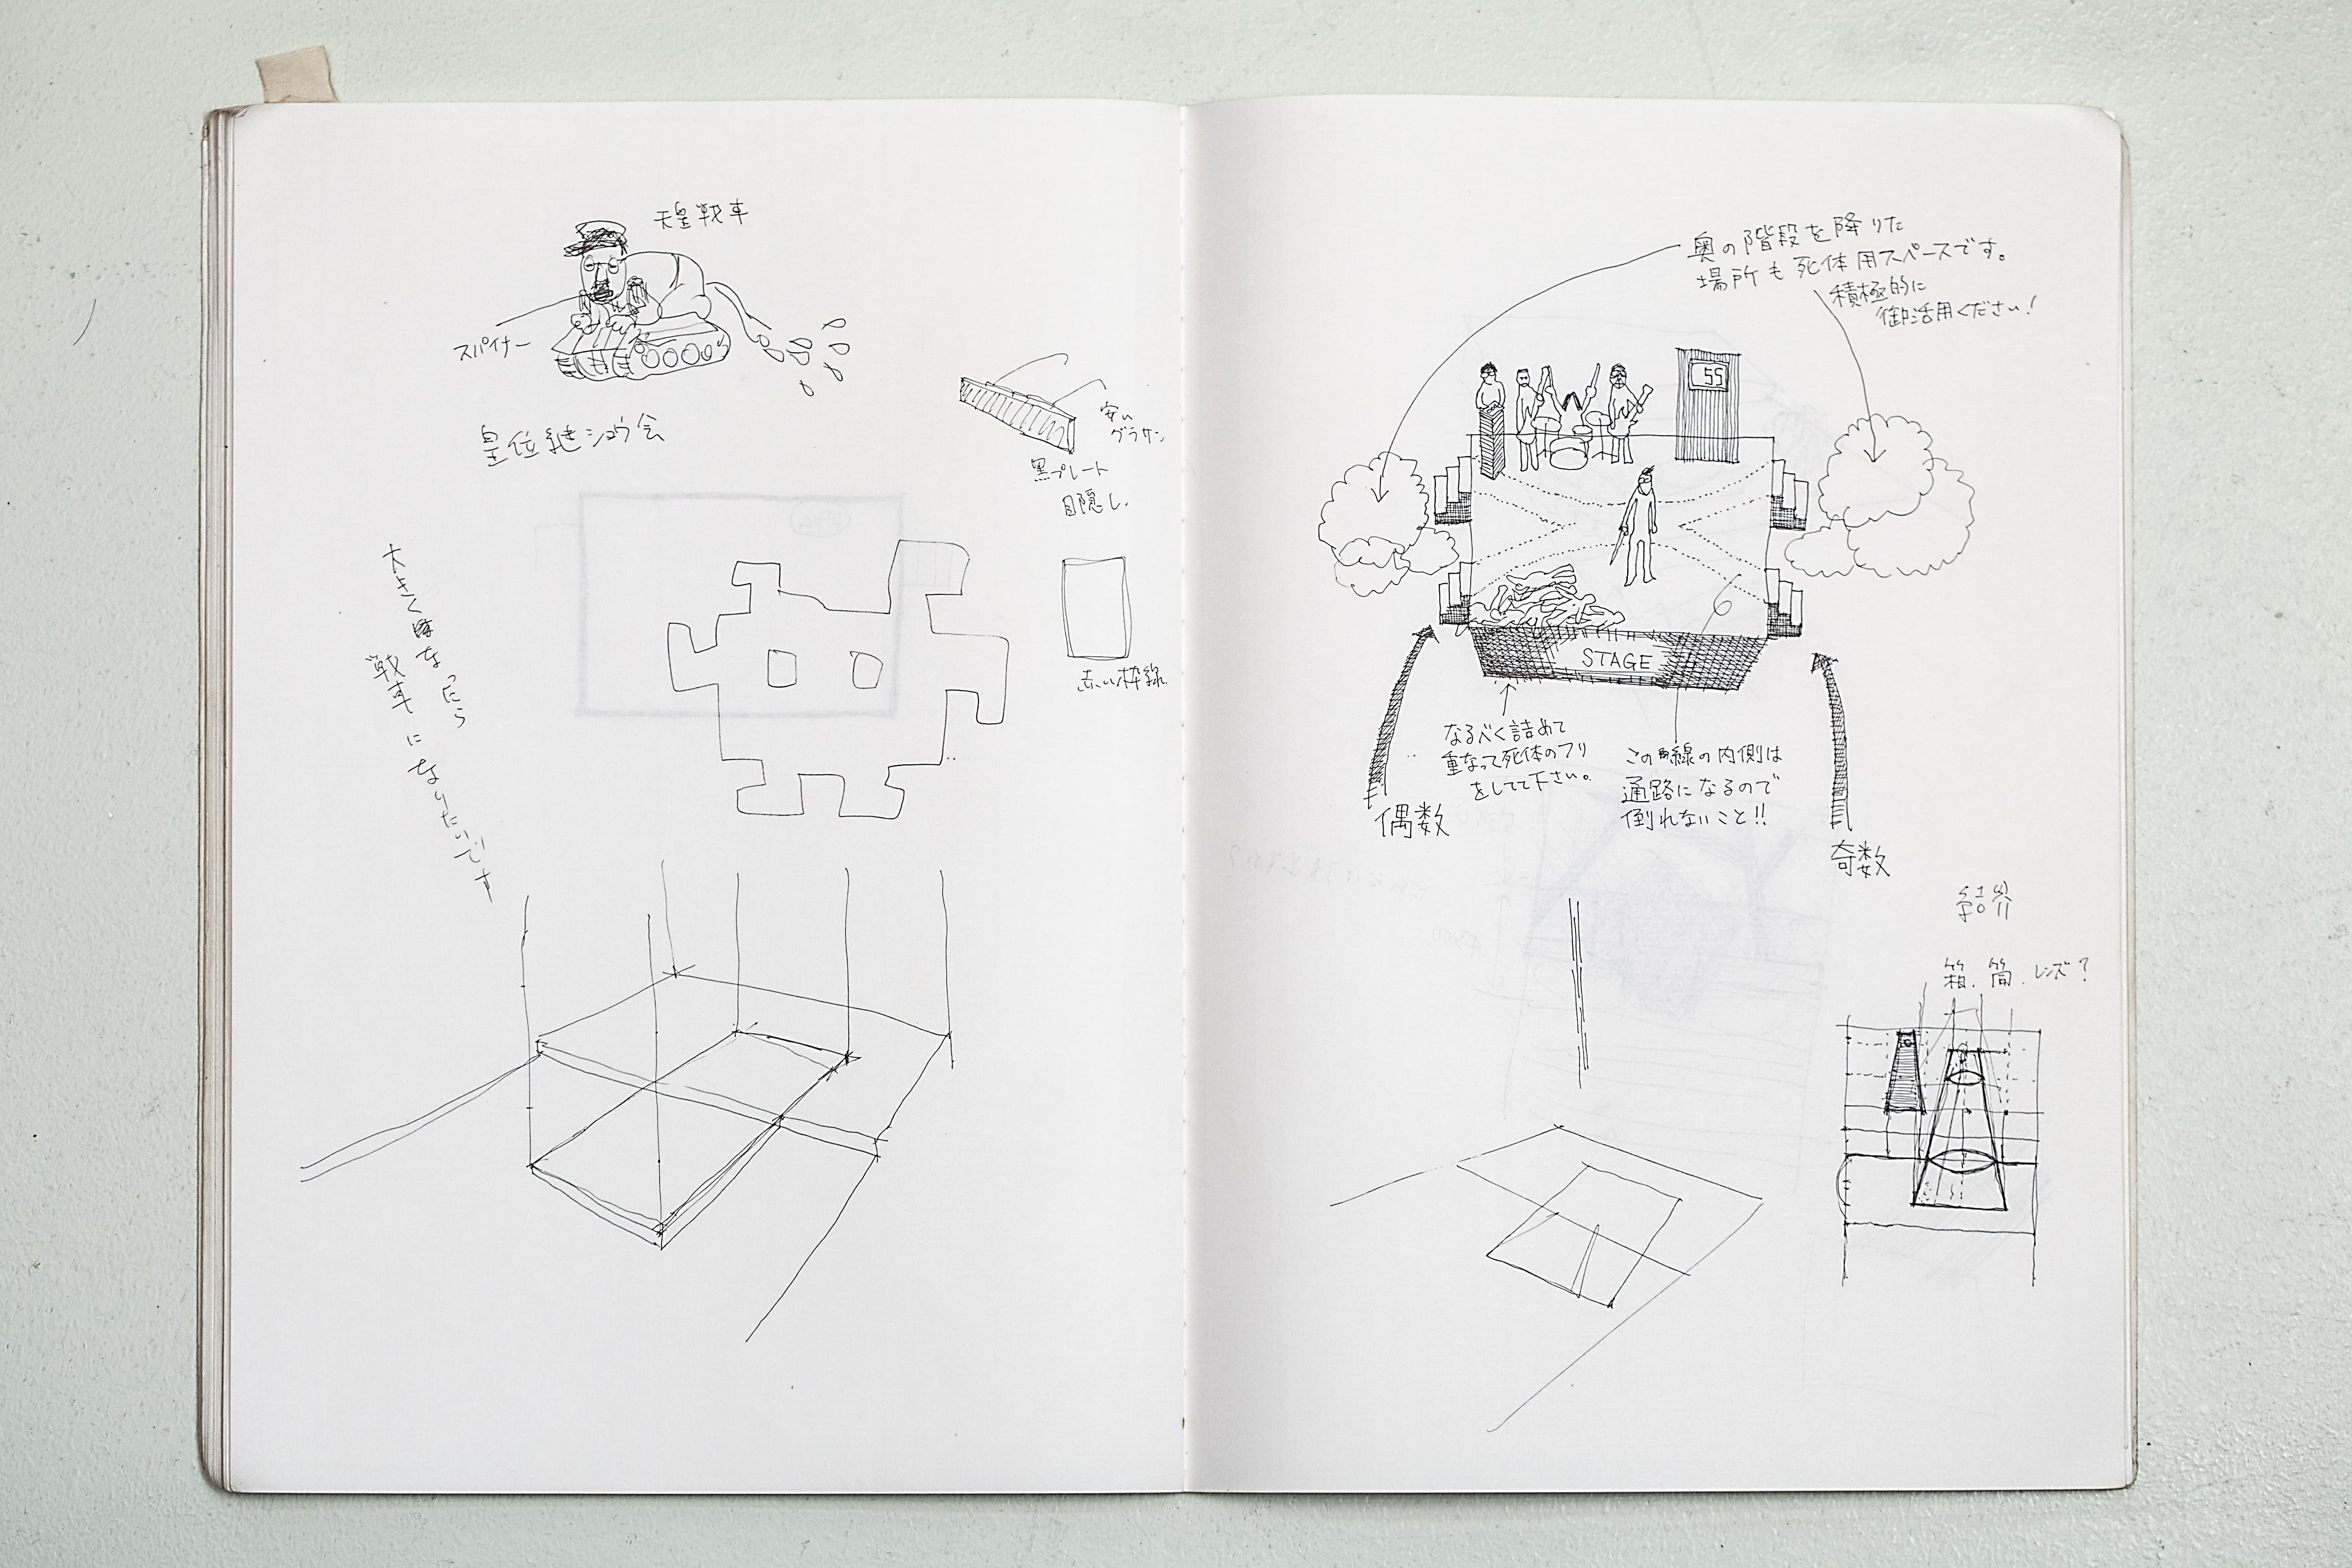 天皇戦車
スパイナー
皇位継ショウ会
安い
グラサン
黒プレート
目隠し.
赤い枠線
大きくなったら
戦車になりたいです
奥の階段を降りた
場所も死体用スペースです。
積極的に
御活用ください!
55
STAGE
なるべく詰めて
重なって死体のフリ
をしてて下さい。
この線の内側は
通路になるので
倒れないこと!!
偶数
奇数
箱.筒.レンズ?